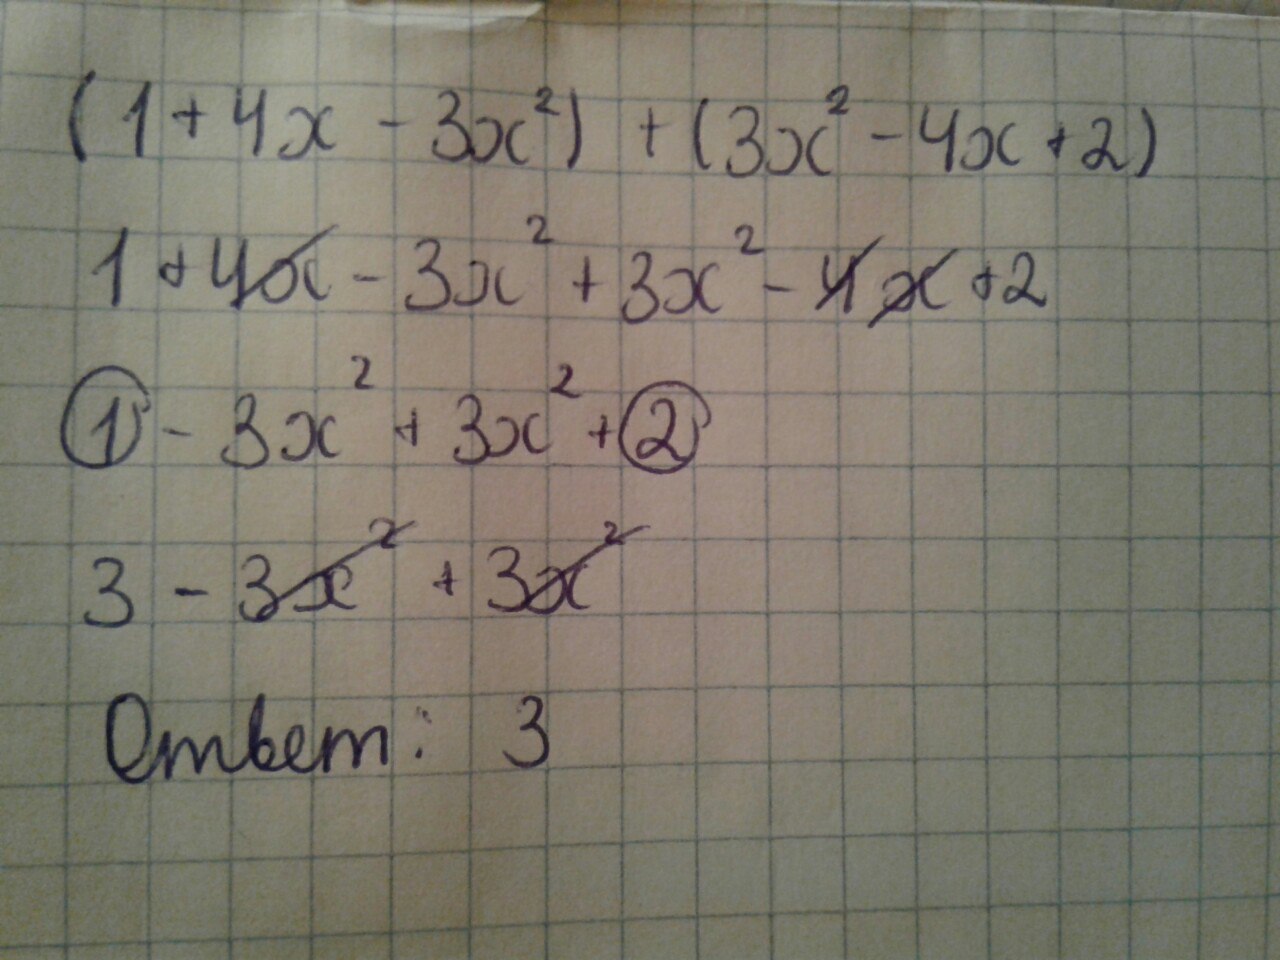 (1 + 4x - 3x²) + (3x² - 4x + 2)
1 + 4x - 3x² + 3x² - 4x + 2
1 - 3x² + 3x² + 2
3 - 3x² + 3x²
Ответ: 3